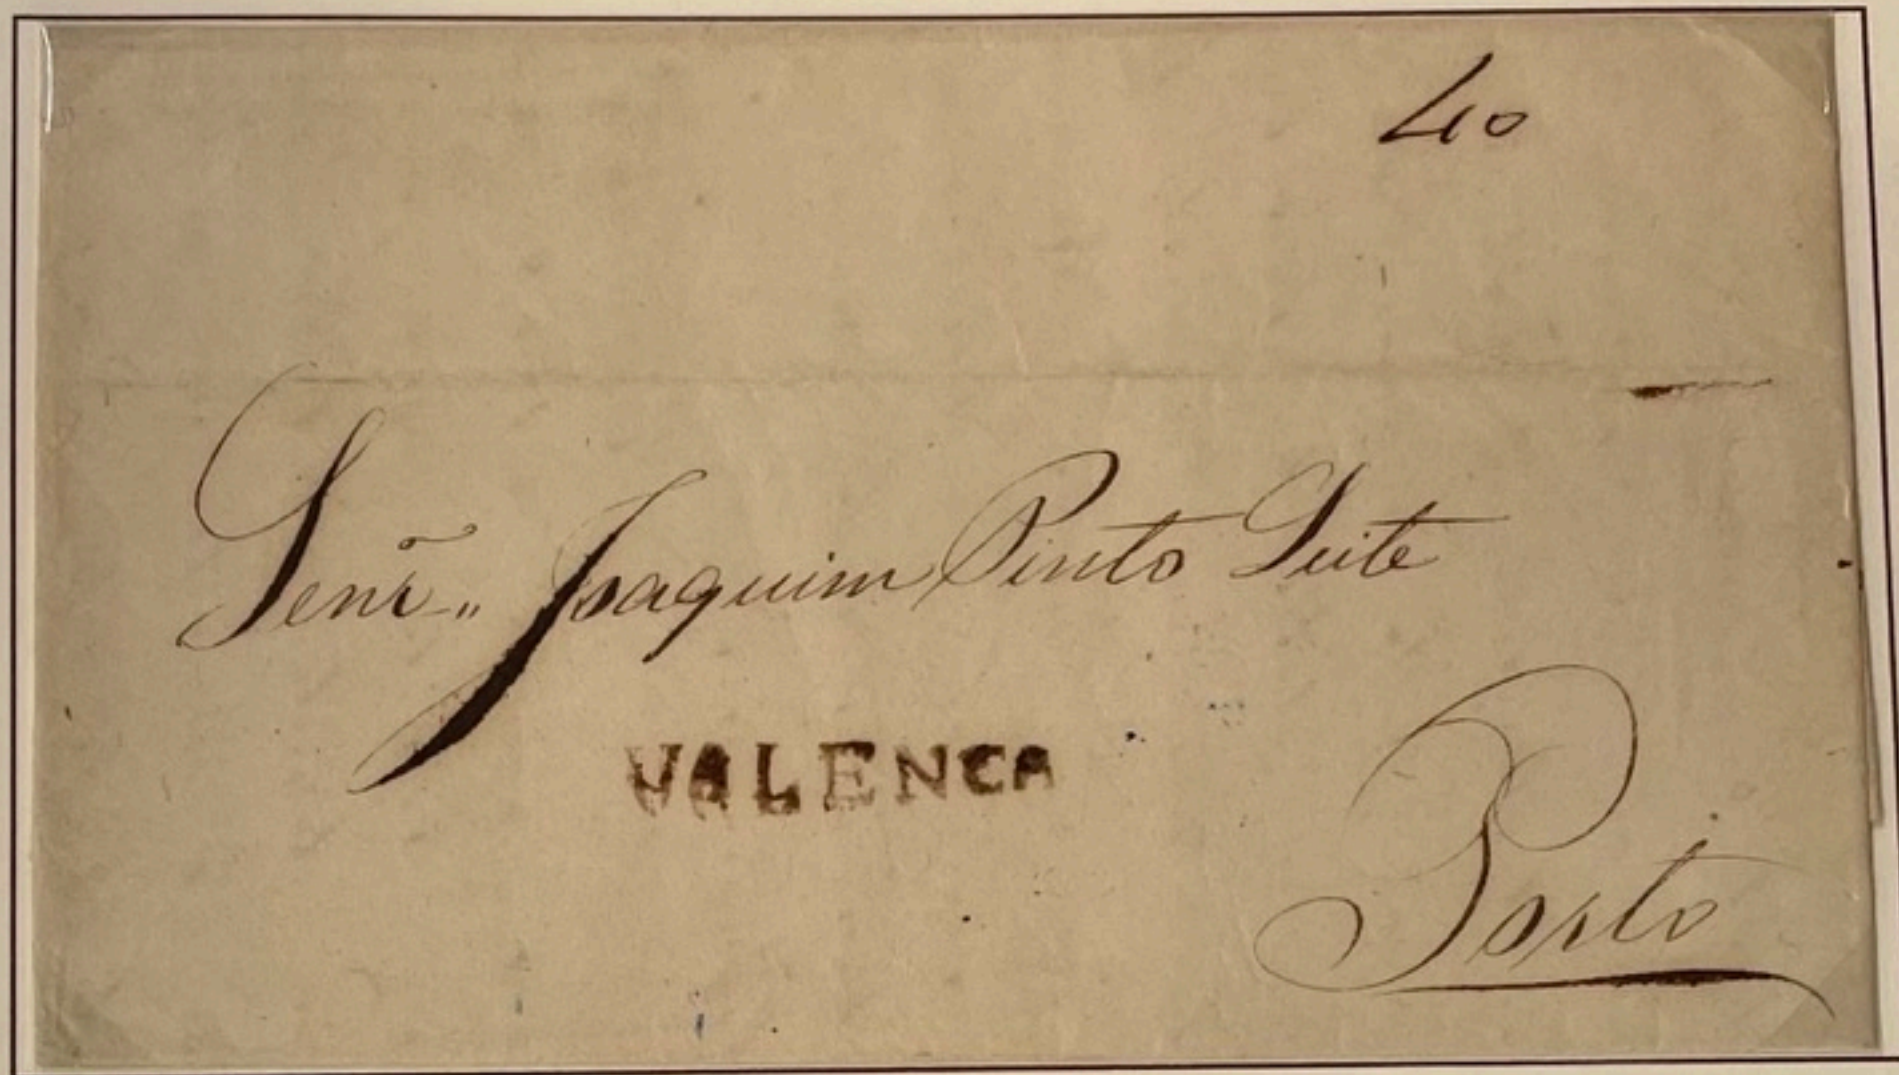 40
Senr.õ„ Joaquim Pinto Leite
VALENCA
Porto